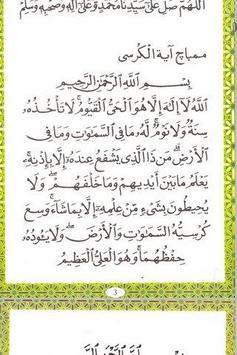 اللهم صل على سيدنا محمد وعلى آله وصحبه وسلم
ممباچ آية الكرسى
بِسْمِ اللَّهِ الرَّحْمَٰنِ الرَّحِيمِ
اللَّهُ لَا إِلَٰهَ إِلَّا هُوَ الْحَيُّ الْقَيُّومُ لَا تَأْخُذُهُ
سِنَةٌ وَلَا نَوْمٌ لَهُ مَا فِي السَّمَٰوَٰتِ وَمَا فِي
الْأَرْضِ مَنْ ذَا الَّذِي يَشْفَعُ عِنْدَهُ إِلَّا بِإِذْنِهِ
يَعْلَمُ مَا بَيْنَ أَيْدِيهِمْ وَمَا خَلْفَهُمْ وَلَا
يُحِيطُونَ بِشَيْءٍ مِنْ عِلْمِهِ إِلَّا بِمَا شَاءَ وَسِعَ
كُرْسِيُّهُ السَّمَٰوَٰتِ وَالْأَرْضَ وَلَا يَئُودُهُ
حِفْظُهُمَا وَهُوَ الْعَلِيُّ الْعَظِيمُ
3